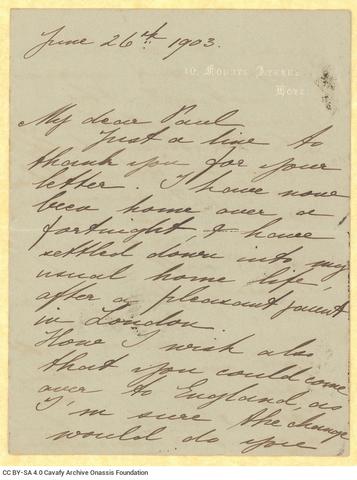 June 26th 1903.
10, Fourth Avenue,
Hove.
My dear Paul
Just a line to
thank you for your
letter. I have now
been home over a
fortnight, & have
settled down into my
usual home life,
after a pleasant jaunt
in London.
How I wish also
that you could come
over to England, as
I'm sure the change
would do you
CC BY-SA 4.0 Cavafy Archive Onassis Foundation